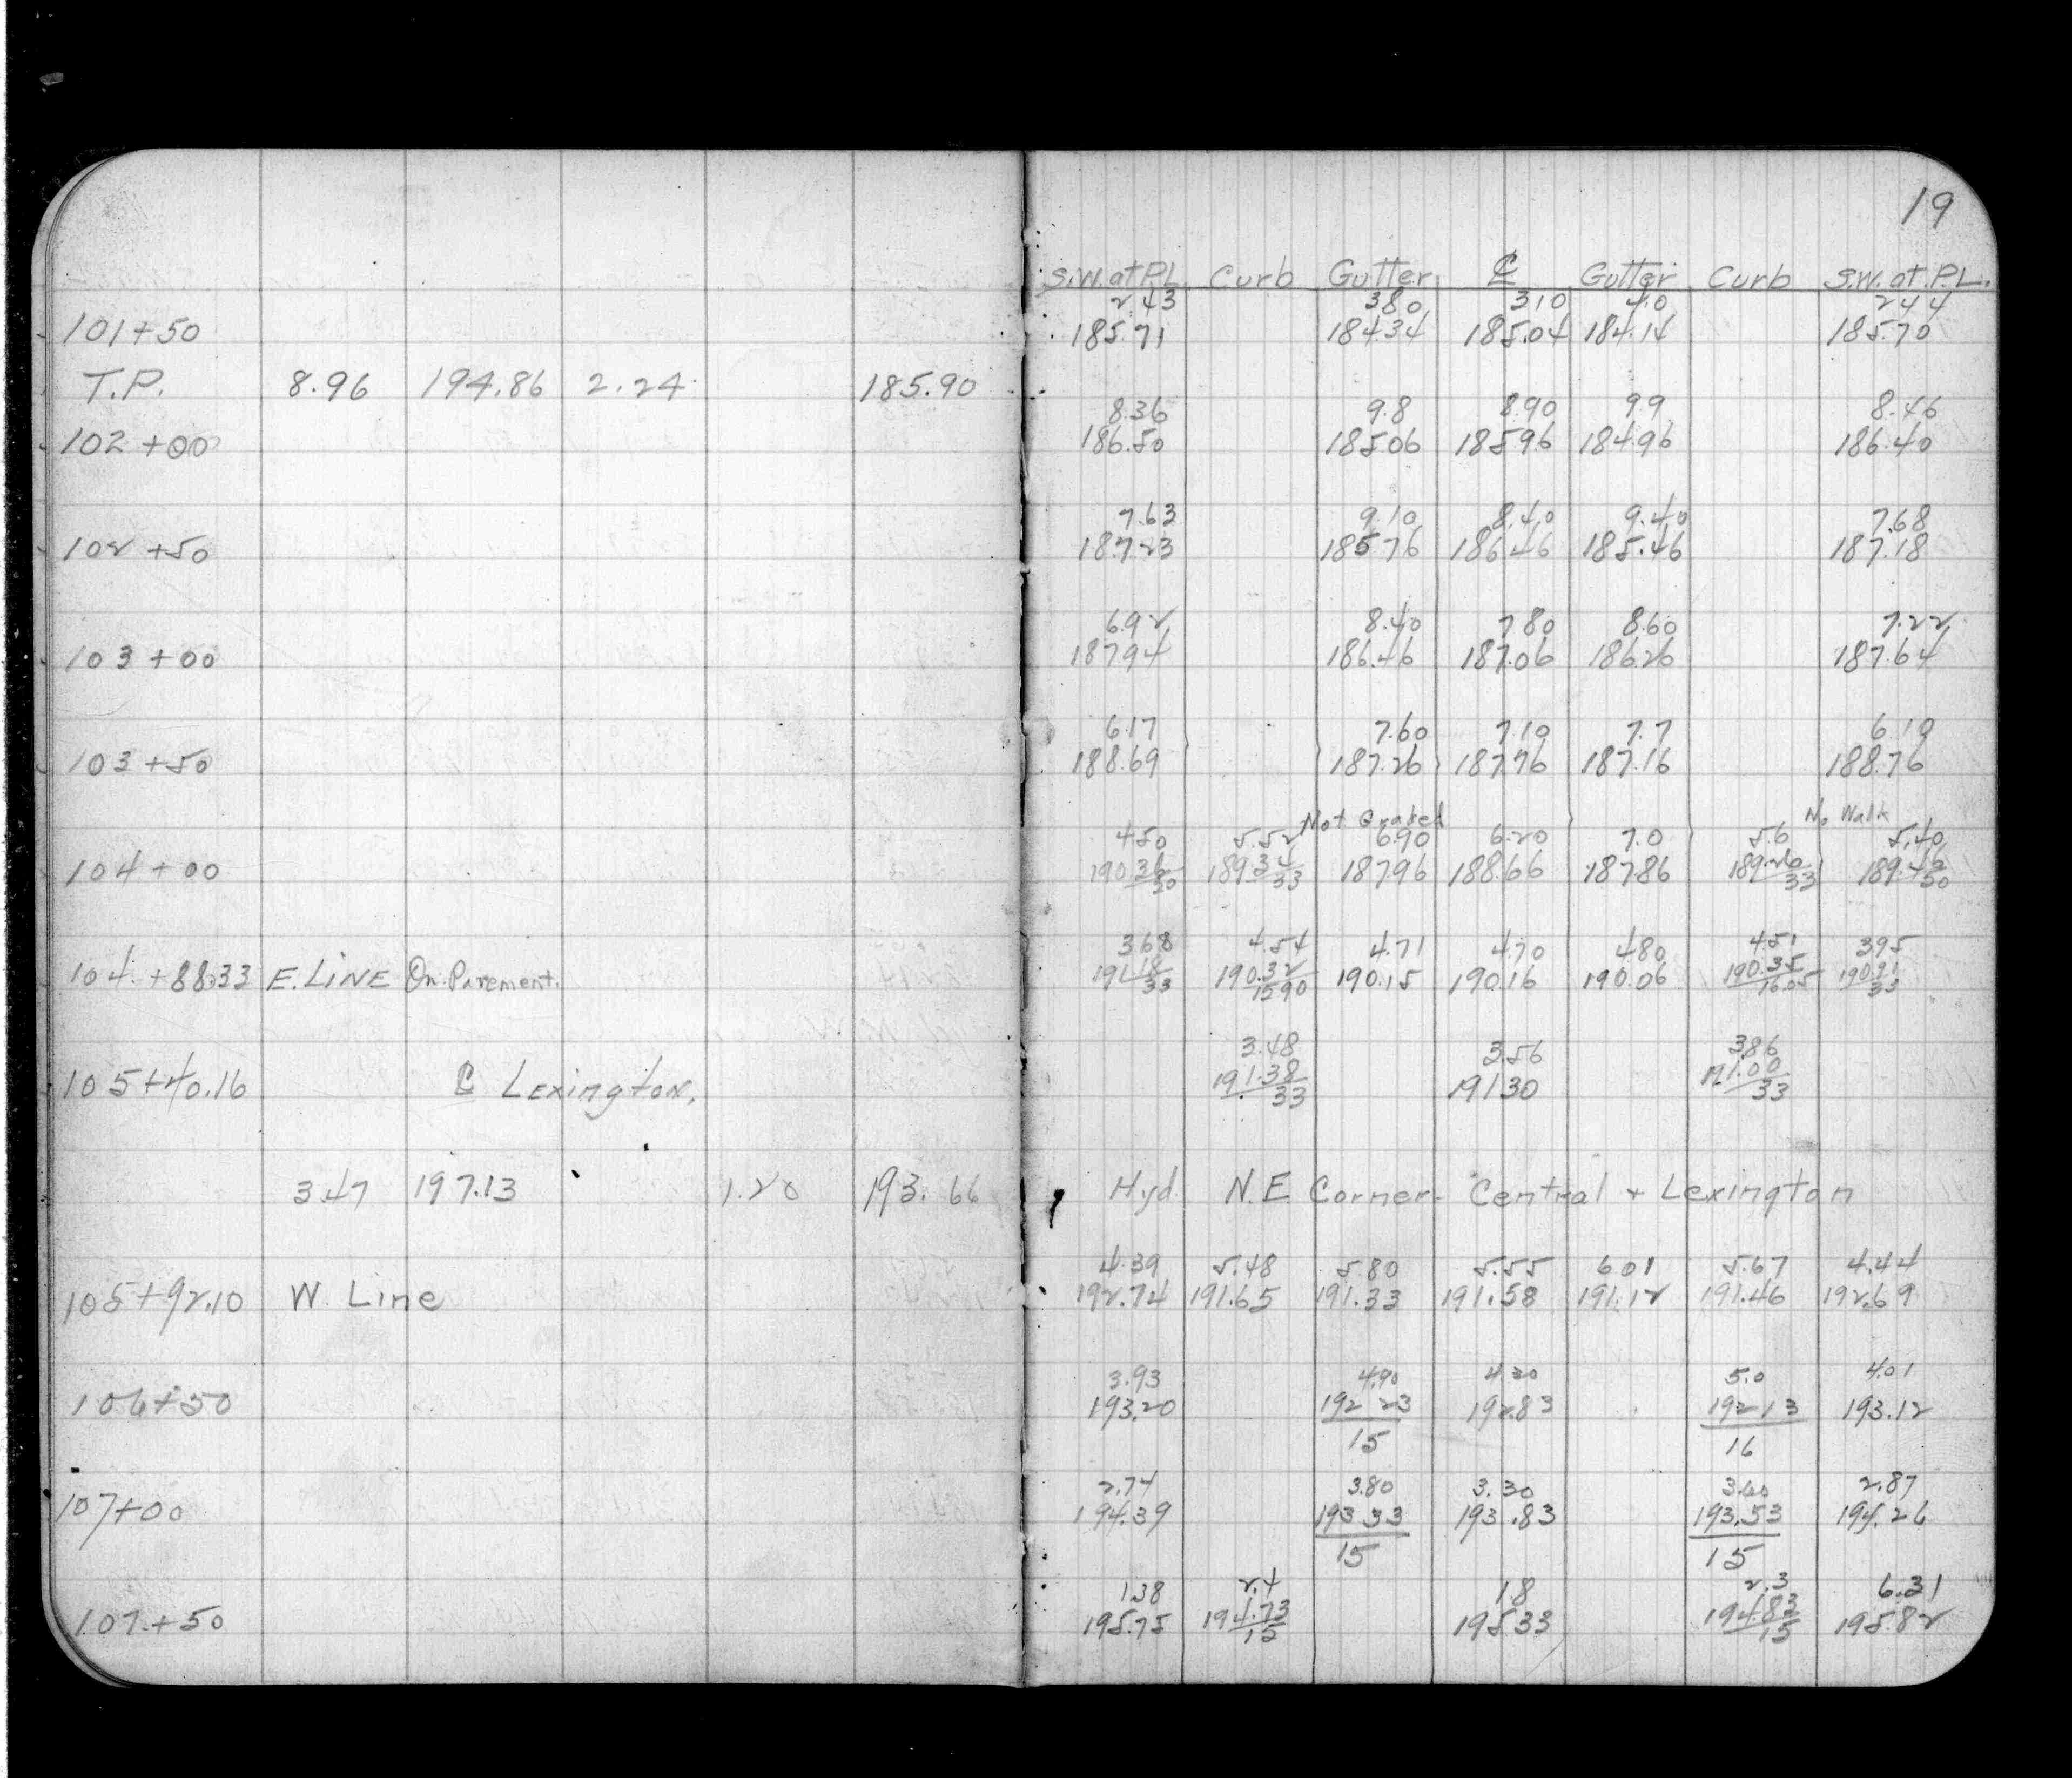 19
S.W. at P.L. Curb Gutter ℄ Gutter Curb S.W. at P.L.
2.43 3.80 3.10 4.0 2.44
101+50 185.71 184.34 185.04 184.14 185.70
T.P. 8.96 194.86 2.24 185.90
8.36 9.8 8.90 9.9 8.46
102+00 186.50 185.06 185.96 184.96 186.40
7.63 9.10 8.40 9.40 7.68
102+50 187.23 185.76 186.46 185.46 187.18
6.92 8.40 7.80 8.60 7.22
103+00 187.94 186.46 187.06 186.26 187.64
6.17 7.60 7.10 7.7 6.10
103+50 188.69 187.26 187.76 187.16 188.76
Not Graded No Walk
4.50 5.52 6.90 6.20 7.0 5.6 5.40
104+00 190.36 189.34 187.96 188.66 187.86 189.26 189.46
50 33 33 50
3.68 4.54 4.71 4.70 4.80 4.51 3.95
104+88.33 E. LINE On Pavement. 191.18 190.32 190.15 190.16 190.06 190.35 190.91
33 15.90 16.05 33
3.48 3.56 3.86
105+40.16 ℄ Lexington. 191.38 191.30 191.00
33 33
3.47 197.13 1.20 193.66 Hyd. N.E Corner - Central + Lexington
4.39 5.48 5.80 5.55 6.01 5.67 4.44
105+92.10 W. Line 192.74 191.65 191.33 191.58 191.12 191.46 192.69
3.93 4.90 4.30 5.0 4.01
106+50 193.20 192.23 192.83 192.13 193.12
15 16
2.74 3.80 3.30 3.60 2.87
107+00 194.39 193.33 193.83 193.53 194.26
15 15
1.38 2.4 1.8 2.3 6.31
107+50 195.75 194.73 195.33 194.83 195.82
15 15